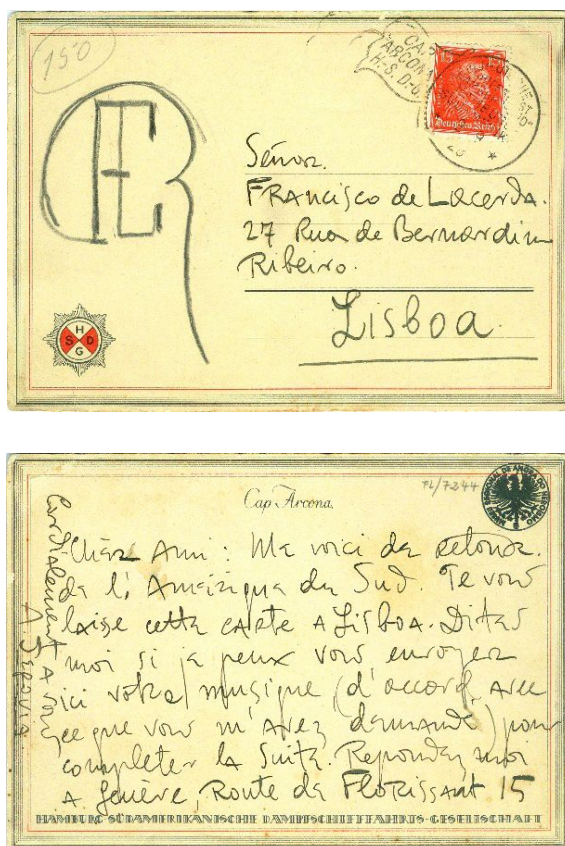 150
CAP
ARCONA
H.S.D.G.
15 15
Deutsches Reich
28
Señor.
FRAncisco de Lacerda.
27 Rua de Bernardim
Ribeiro.
Lisboa.
H
S D
G
FL/7244
Cap Arcona,
Cher Ami: Me voici de retour.
de l'Amerique du Sud. Je vous
laisse cette cARTE A LisboA. Dites
moi si je peux vous envoyer
ici votre musique (d'accord avec
ce que vous m'avez demandé) pour
completer la Suite. Repondez moi
A Genève, Route de Florissant 15
Cordialement A vous
A. Segovia.
HAMBURG-SÜDAMERIKANISCHE DAMPFSCHIFFFAHRTS-GESELLSCHAFT